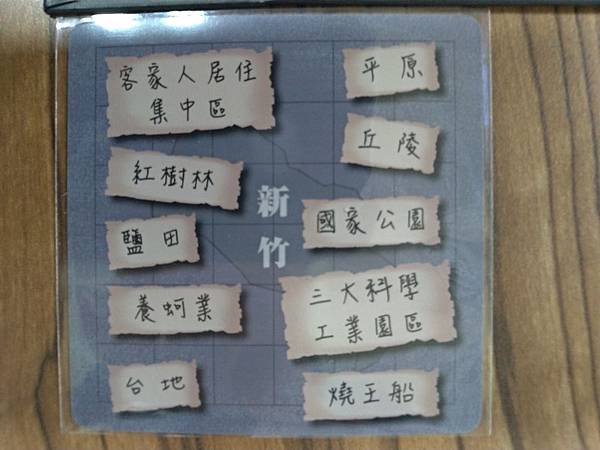 客家人居住
集中區
紅樹林
鹽田
養蚵業
台地
新竹
平原
丘陵
國家公園
三大科學
工業園區
燒王船